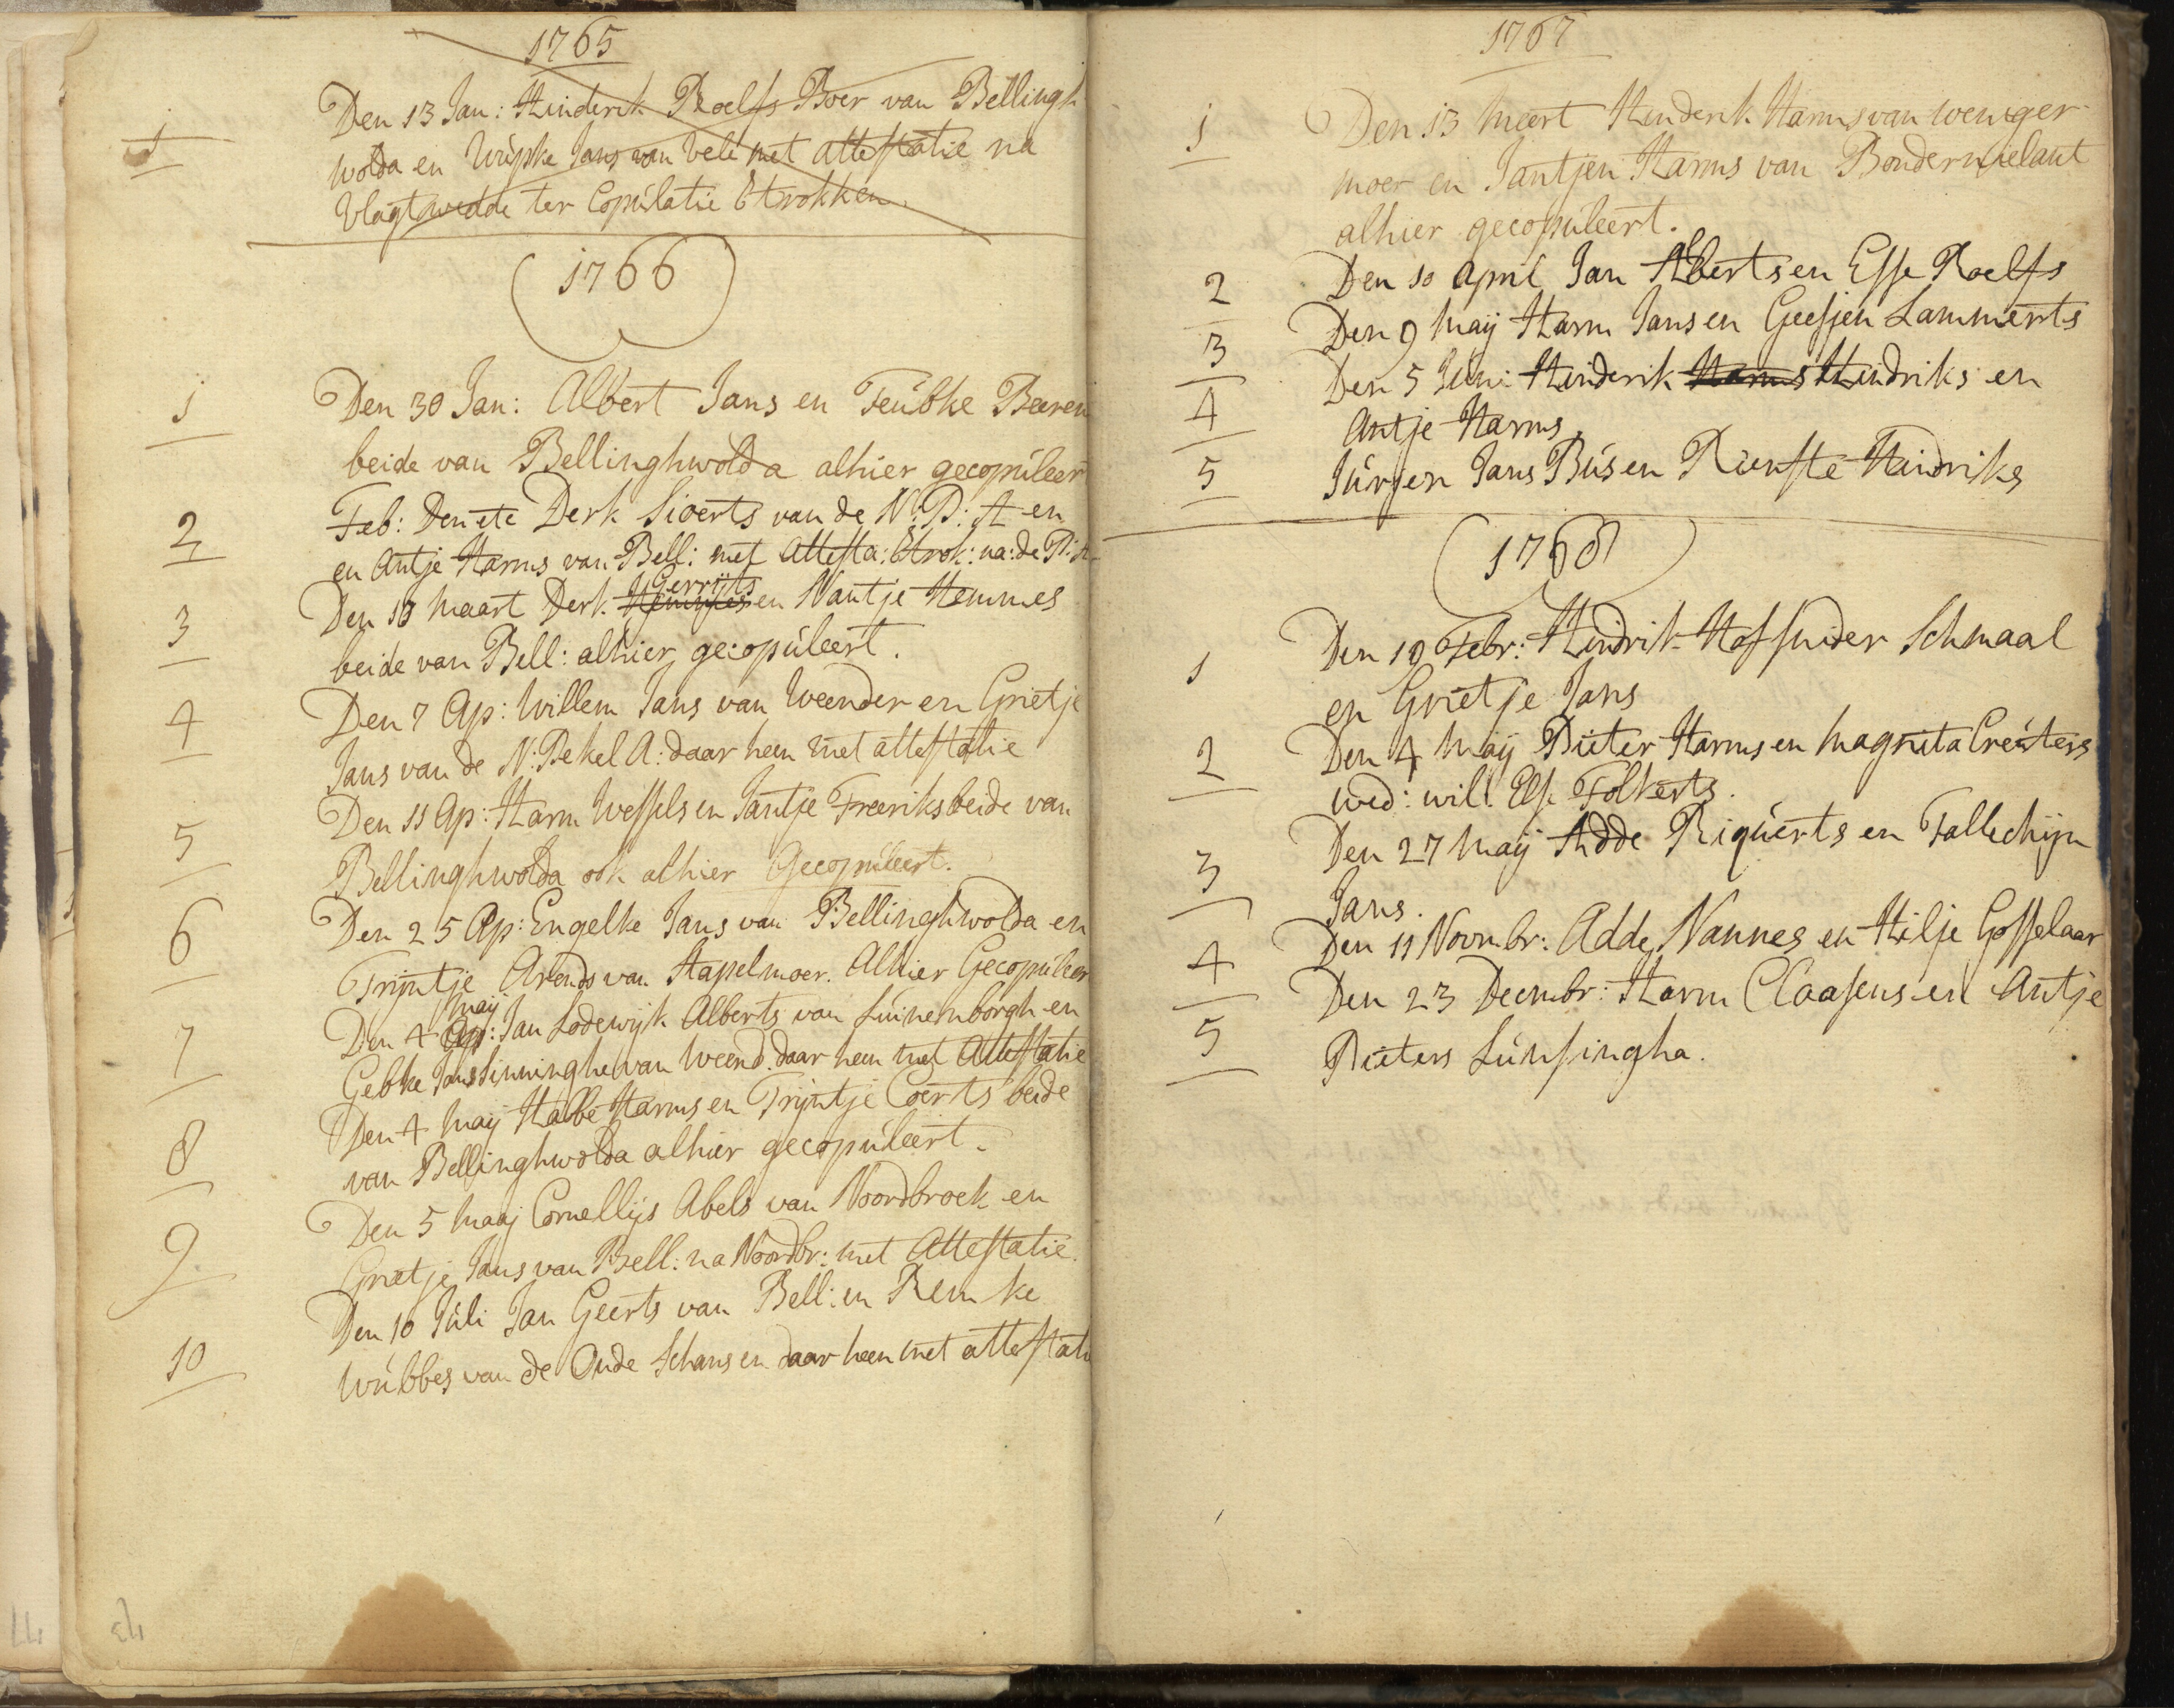 1765
1
Den 13 Jan: Hinderik Roelfs Boer van Bellingh
wolda en Wupke Jans van Vele met attestatie na
Vlagtwedde ter Copulatie Etrokken.
1766
1
Den 30 Jan: Albert Jans en Feubke Beeren
beide van Bellinghwolda alhier gecopuleer
2
Feb: Den ete Derk Sioerts van de N: P: A en
en Antje Harms van Bell: met Attesta: Etrok: na: de P: A
3
Den 10 Maart Derk Gerrijts en Nantje Hemmes
beide van Bell: alhier gecopuleert.
4
Den 7 Ap: Willem Jans van Weender en Grietje
Jans van de N: Pekel A: daar heen met attestatie
5
Den 11 Ap: Harm Wessels en Jantje Freeriks beide van
Bellinghwolda ook alhier Gecopuleert.
6
Den 25 Ap: Engelke Jans van Bellinghwolda en
Trijntje Arends van Stapelmoer. Alhier Gecopuleer
7
maij
Den 4 Ap: Jan Lodewijk Alberts van Luinemborgh en
Gebke Jans Sinninghe van Weend. daar heen met Attestatie
8
Den 4 Maij Habbe Harms en Trijntje Coerts beide
van Bellinghwolda alhier gecopuleert.
9
Den 5 Maaj Cornellijs Abels van Noordbroek en
Grietje Jans van Bell: na Noordbr: met Attestatie.
10
Den 10 Juli Jan Geerts van Bell: en Remke
Wubbes van de Oude Schans en daar heen met attestati
43
1767
1
Den 13 Meert Hinderik Harms van Weniger
moer en Jantjen Harms van Bondernielant
alhier gecopuleert.
2
Den 10 April Jan Alberts en Esse Roelfs
3
Den 9 Maij Harm Jans en Geesjen Lammerts
4
Den 5 Juni Hinderik Harms Hindriks en
Antje Harms
5
Jurjen Jans Bus en Rienste Hindriks
1768
1
Den 10 Febr: Hindrik Hofsnider Schmaal
en Grietje Jans
2
Den 4 Maij Pieter Harms en Magrita Creuters
wed: wil: Else Folkerts.
3
Den 27 Maij Adde Riquerts en Fallechijn
Jans.
4
Den 11 Novmbr: Adde Nannes en Hilje Gosselaar
5
Den 23 Decmbr: Harm Claasens en Antje
Pieters Lunsingha.